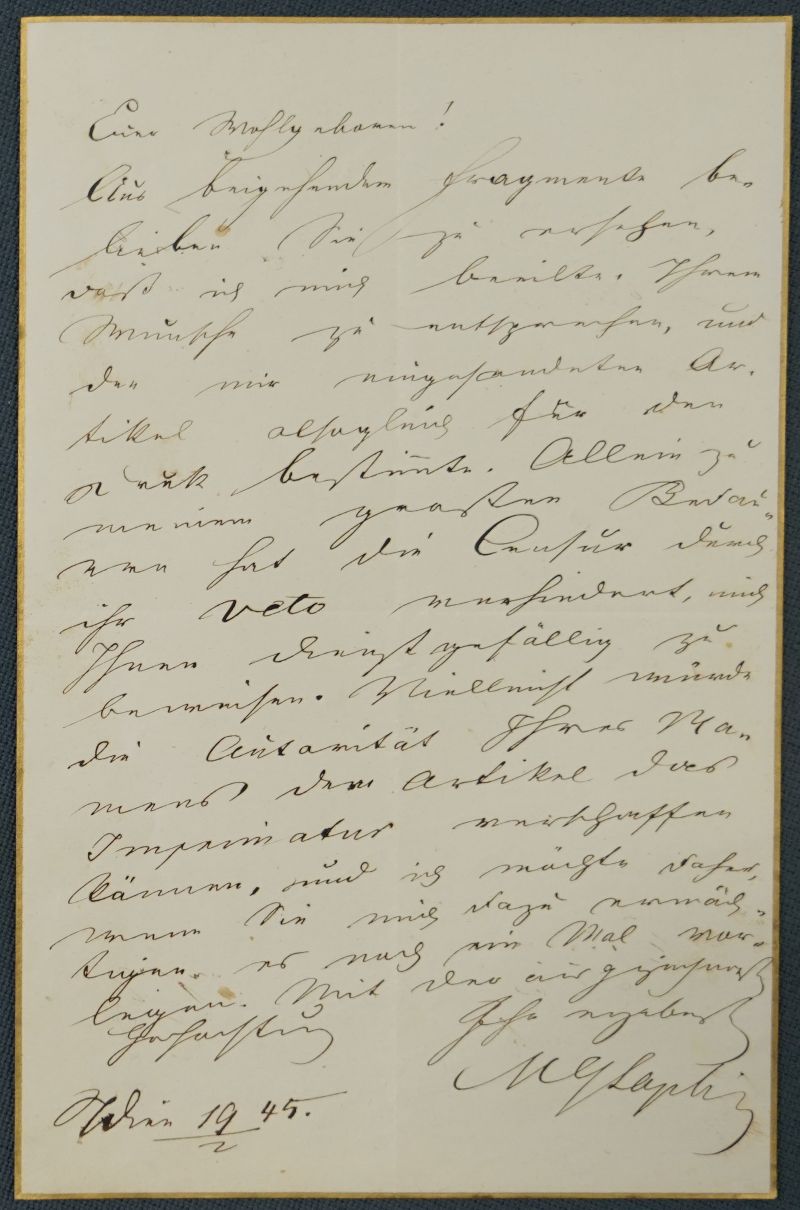 Euer Wohlgeboren!
Aus beigehendem Fragmente be-
lieben Sie zu ersehen,
daß ich mich beeilte, Ihrem
Wunsche zu entsprechen, und
den mir eingesandeten Ar-
tikel alsogleich für den
Druk bestimte. Allein zu
meinem grosten Bedau-
ern hat die Censur durch
ihr Veto verhindert, mich
Ihnen dienstgefällig zu
beweisen. Vielleicht würde
die Autorität Ihres Na-
mens dem Artikel das
Imprimatur verschaffen
können, und ich möchte daher,
wenn Sie mich dazu ermäch-
tigen, es noch ein Mal vor-
legen. Mit der ausgezeichnest
Hochachtung Ihr ergebenst
MGSaphir
Wien 19/2 45.